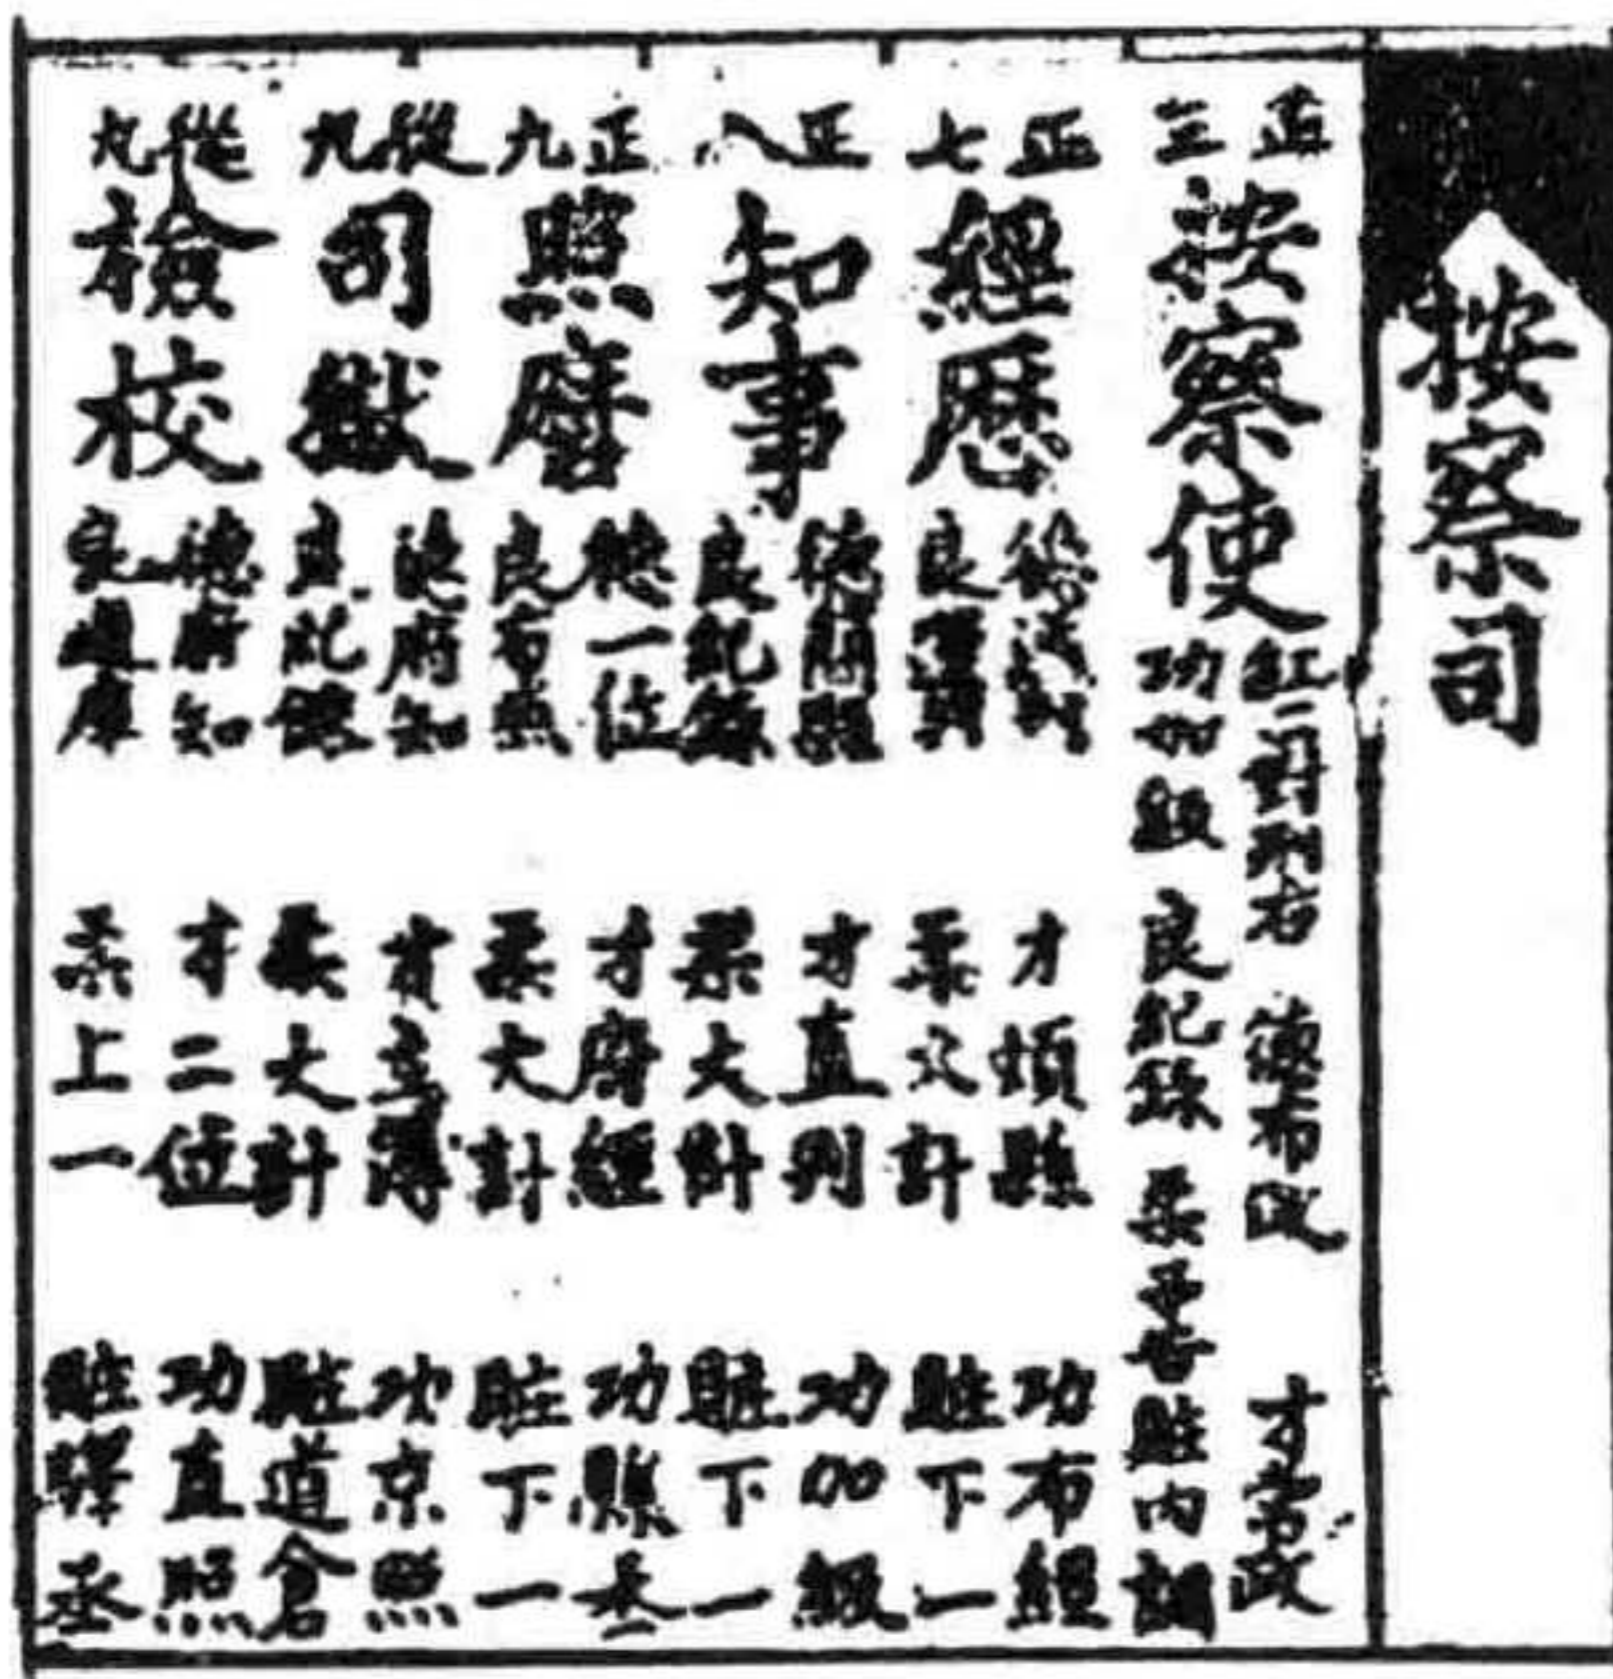 按察司
正三 按察使 紅二對刑右 德布政 才常政
功加級 良紀錄 柔平告 賍內調
正七 經歷 德 才煩縣 功布經
良 柔大計 賍下一
正八 知事 德 才直判 功加級
良紀錄 柔大計 賍下一
正九 照磨 德一位 才府經 功縣丞
良布照 柔大計 賍下一
從九 司獄 德府知 才主簿 功京照
良 柔大計 賍道倉
從九 檢校 德府知 才二位 功直照
良 柔上一 賍驛丞